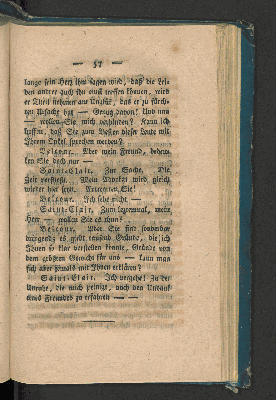 — 57 —
lange sein Herz ihm sagen wird, daß die Lei-
den andrer auch ihn einst treffen können, wird
er Theil nehmen am Unglük, das er zu fürch-
ten Ursache hat — Genug davon! Und nun
— wollen Sie mich verbinden? Kann ich
hoffen, daß Sie zum Besten dieser Leute mit
Ihrem Onkel sprechen werden?
Belcour. Aber mein Freund, beden-
ken Sie doch nur —
Saint-Clair. Zur Sache. Die
Zeit verfließt. Mein Advokat wird gleich
wieder hier seyn. Antworten Sie!
Belcour. Ich sehe nicht —
Saint-Clair. Zum letztenmal, mein
Herr — wollen Sie es thun?
Belcour. Aber Sie sind sonderbar
dringend es giebt tausend Gründe, die ich
Ihnen so klar vorstellen könnte, Gründe von
dem größten Gewicht für uns — kann man
sich aber jemals mit Ihnen erklären?
Saint-Clair. Ich vergehe! Zu der
Unruhe, die mich peinigt, noch den Undank
eines Freundes zu erfahren — —